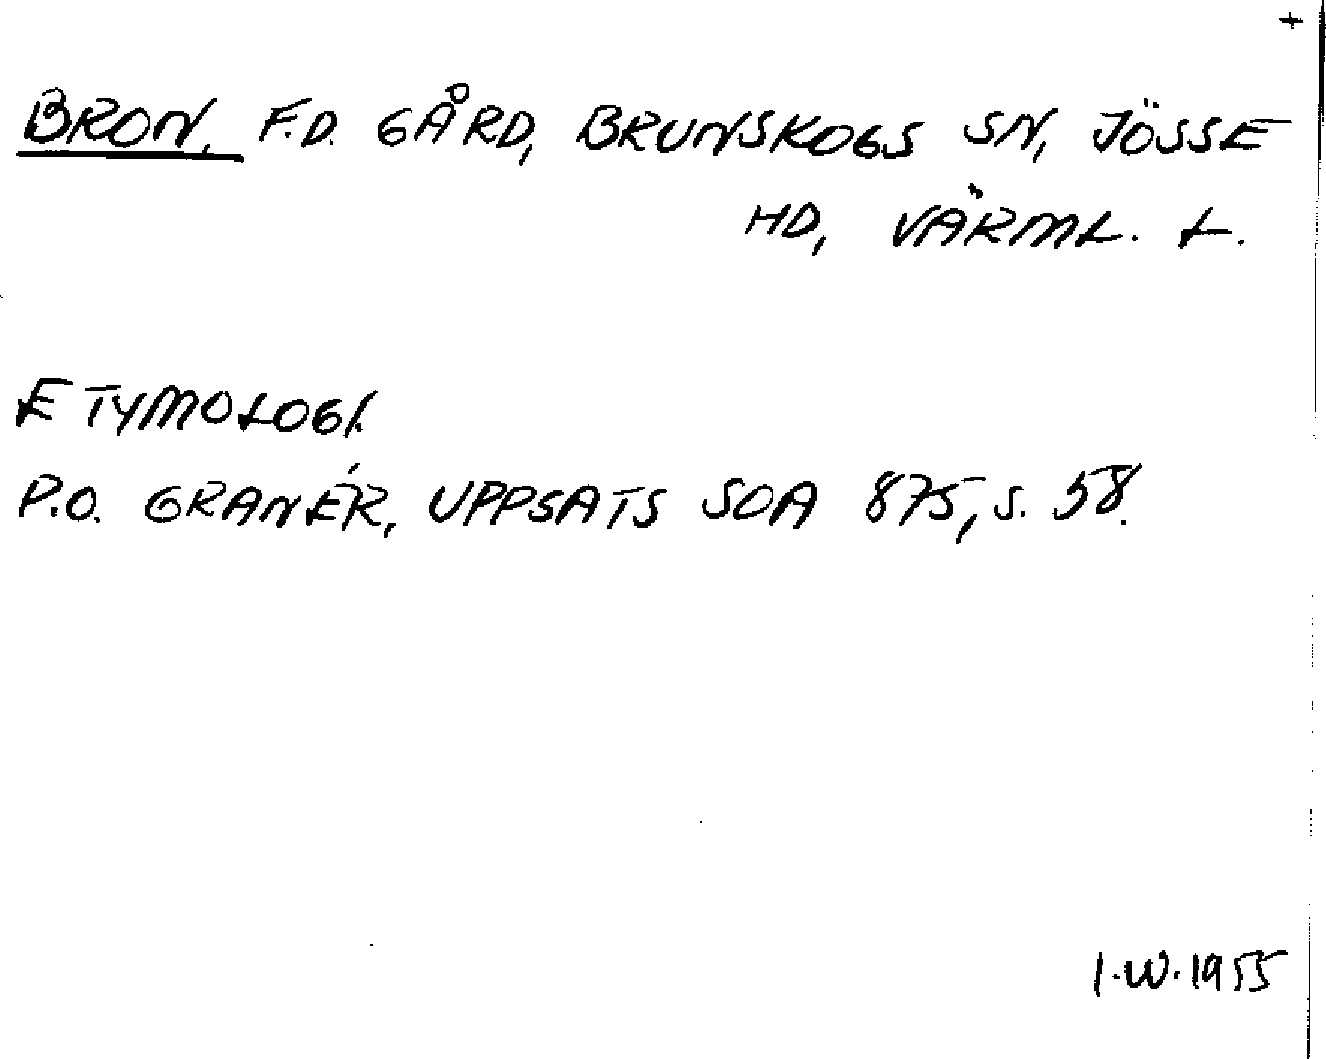 +
BRON, F.D. GÅRD, BRUNSKOGS SN, JÖSSE
HD, VÄRML. L.
ETYMOLOGI.
P.O. GRANÉR, UPPSATS SOA 875, S. 58.
I.W. 1955